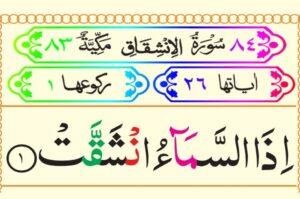 ٨٤ سُوْرَةُ الْاِنْشِقَاقِ مَكِّيَّةٌ ٨٣
اٰیاتها ٢٦ رکوعها ١
اِذَا السَّمَآءُ انْشَقَّتْ ۙ ١